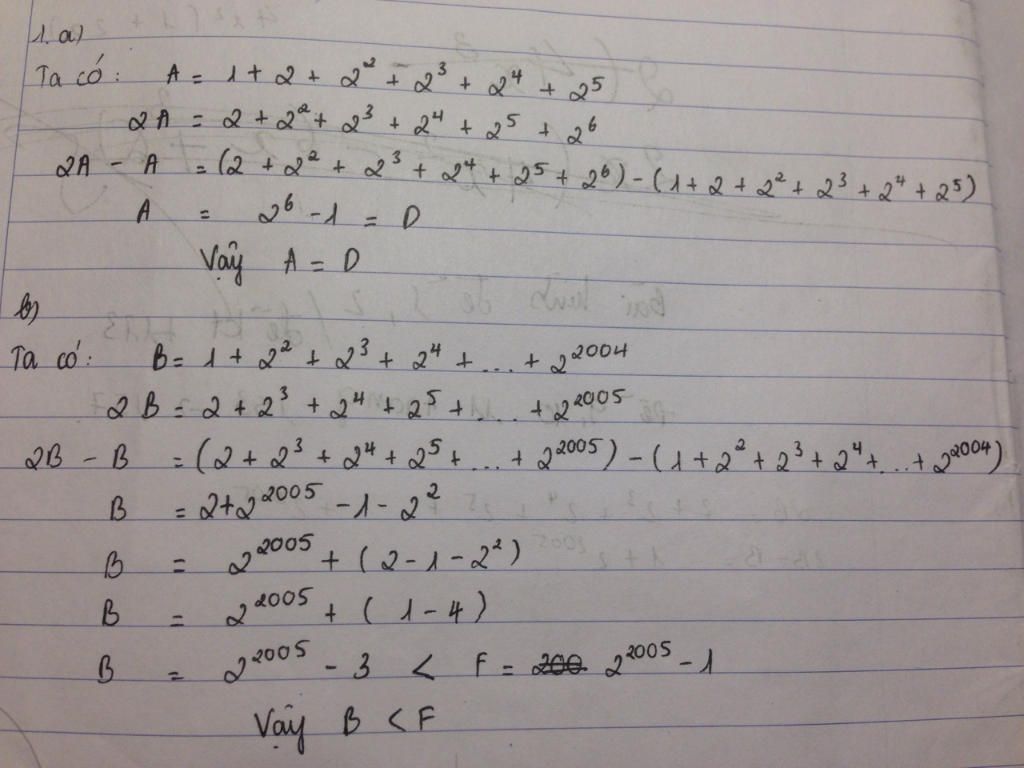 1. a)
Ta có: A = 1 + 2 + 2² + 2³ + 2⁴ + 2⁵
2A = 2 + 2² + 2³ + 2⁴ + 2⁵ + 2⁶
2A - A = (2 + 2² + 2³ + 2⁴ + 2⁵ + 2⁶) - (1 + 2 + 2² + 2³ + 2⁴ + 2⁵)
A = 2⁶ - 1 = D
Vậy A = D
b)
Ta có: B = 1 + 2² + 2³ + 2⁴ + ... + 2²⁰⁰⁴
2B = 2 + 2³ + 2⁴ + 2⁵ + ... + 2²⁰⁰⁵
2B - B = (2 + 2³ + 2⁴ + 2⁵ + ... + 2²⁰⁰⁵) - (1 + 2² + 2³ + 2⁴ + ... + 2²⁰⁰⁴)
B = 2 + 2²⁰⁰⁵ - 1 - 2²
B = 2²⁰⁰⁵ + (2 - 1 - 2²)
B = 2²⁰⁰⁵ + (1 - 4)
B = 2²⁰⁰⁵ - 3 < F = 2²⁰⁰⁵ - 1
Vậy B < F